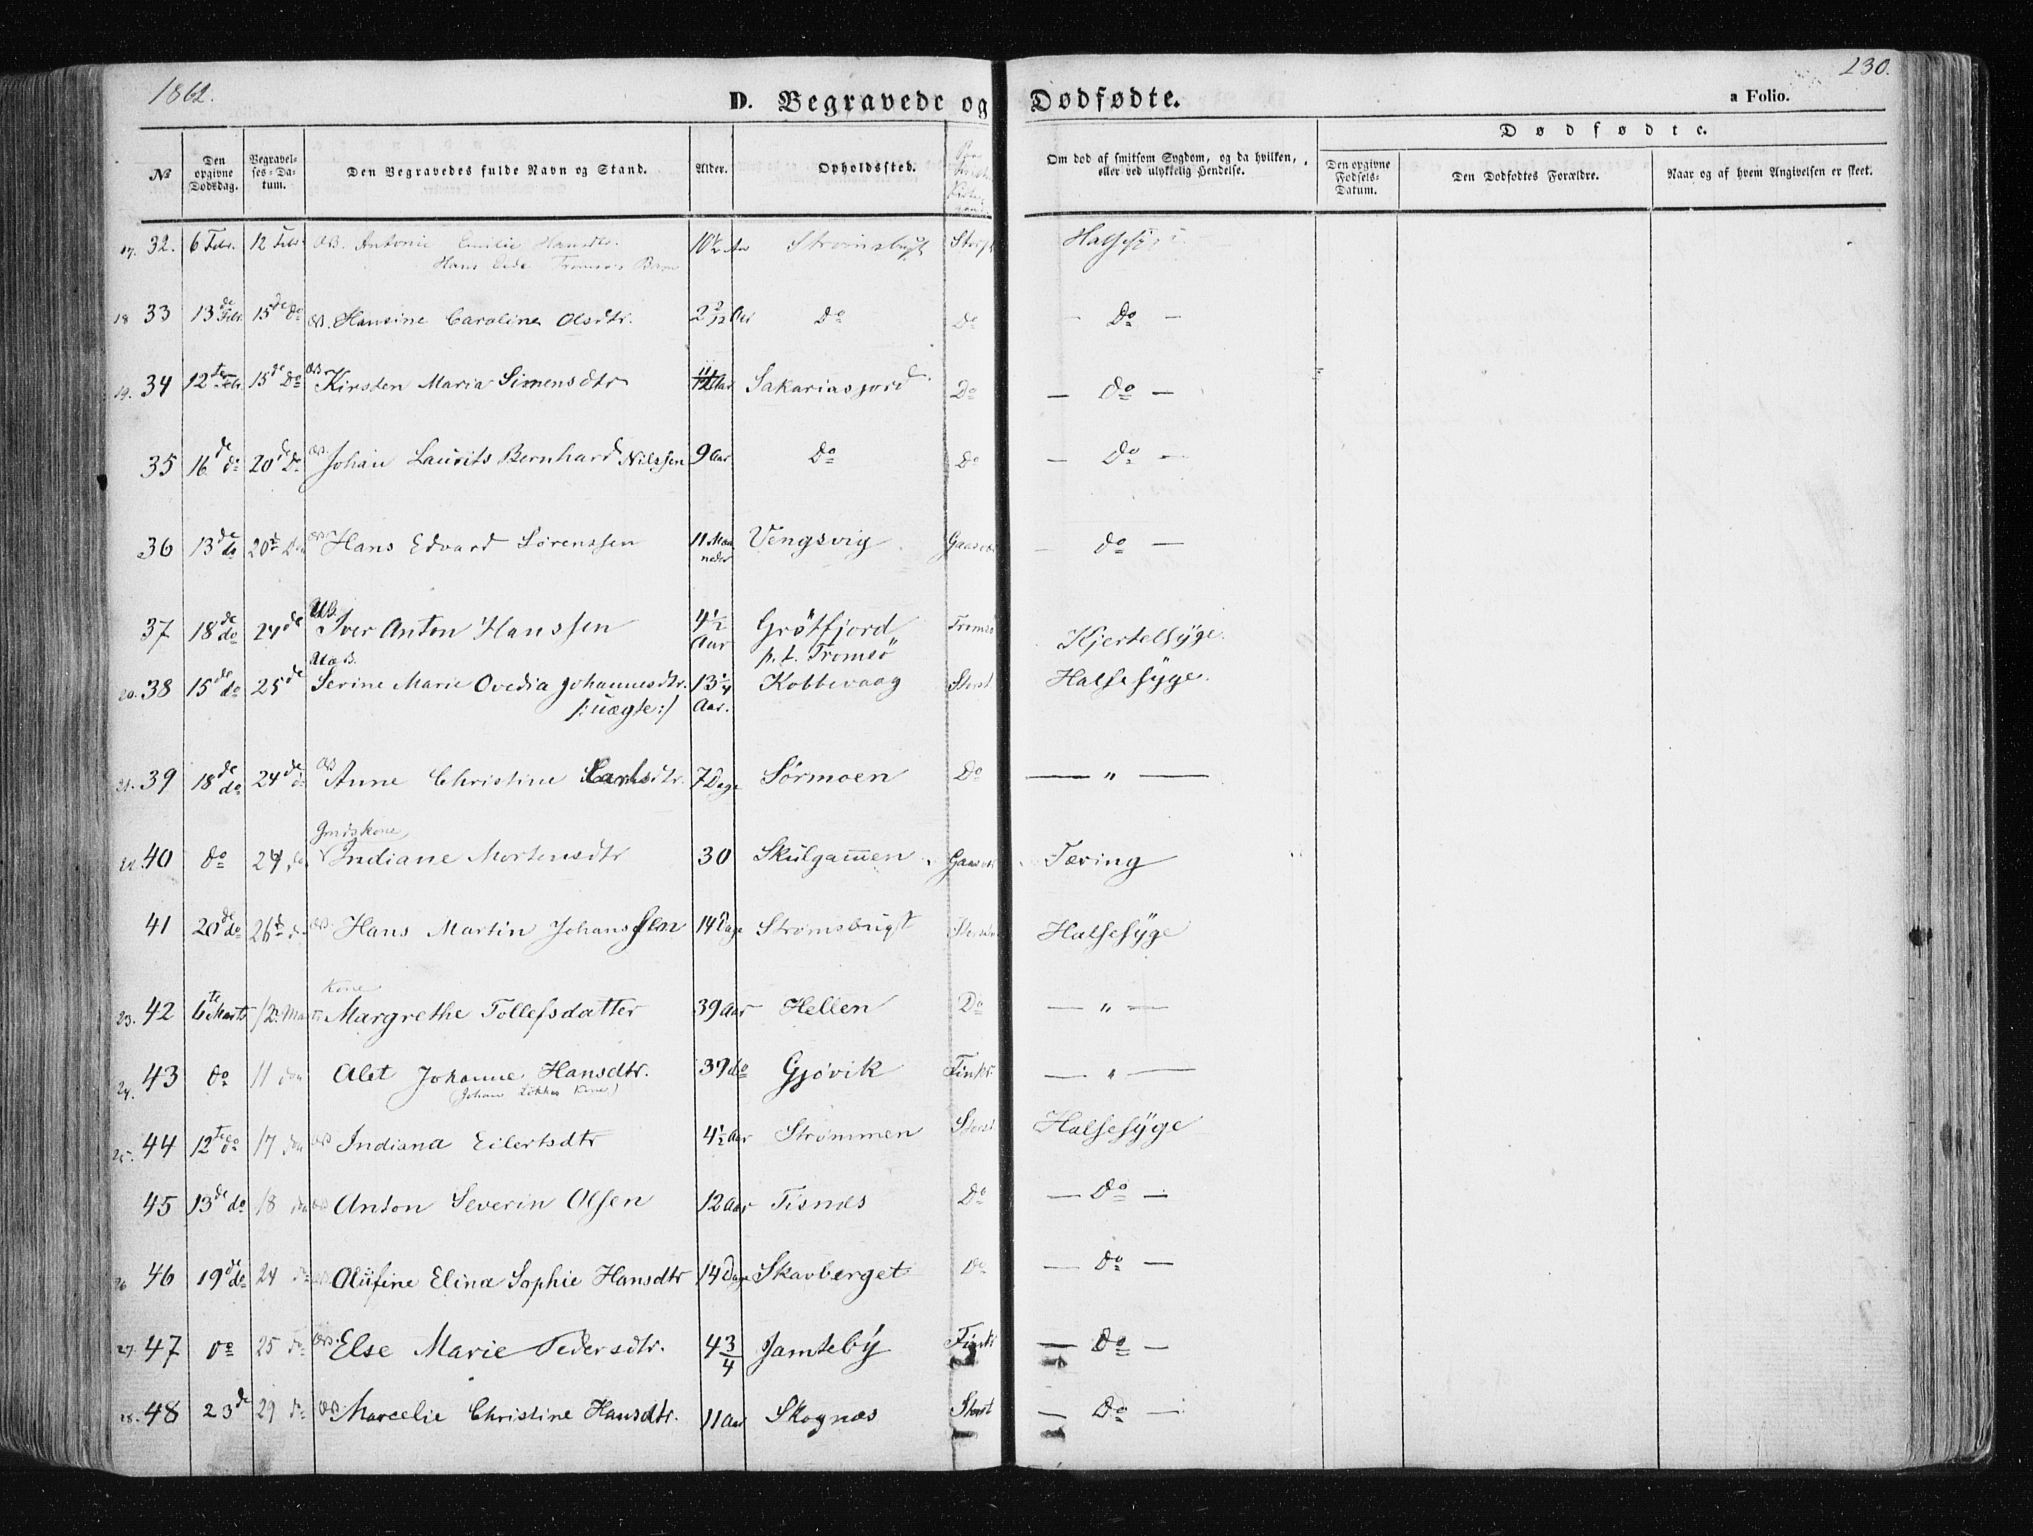 1862.
230.
D. Begravede og Dødfødte.
a Folio.
№
Den opgivne Dødsdag.
Begravelses-Datum.
Den Begravedes fulde Navn og Stand.
Alder.
Opholdssted.
Om død af smitsom Sygdom, og da hvilken, eller ved ulykkelig Hendelse.
Dødfødte.
Den opgivne Fødsels-Datum.
Den Dødfødtes Forældre.
Naar og af hvem Angivelsen er skeet.
17. 32. 6 Febr. 12 Febr. Antonie Emilie Hansdtr. 10½ Aar Strømsbugt
Hans Barn
18 33 13de Febr. 15de Do Hansine Caroline Olsdtr. 2 2/12 Aar Do Do — Do —
19. 34 12te Febr. 15de Do Kirsten Maria Simensdtr 11 Aar Sakariasjord Do — Do —
35 16de do 20de Do Johan Laurits Bernhard Nilssen 9 Aar Do Do — Do —
36 13de do 20de Hans Edvard Sørenssen 11 Maaneder Vengsvig — do —
37 18de do 24de UB. Iver Anton Hanssen 4½ Aar Grøtfjord p. t. Tromsö Tromsö Kjertelsyge.
20. 38 15de do 25de Serine Marie Ovedia Johannesdtr. 13¼ Aar. Kobbevaag Storst Halsesyge.
/: uægte :/
21. 39 18de do 24de do Anne Christine Carlsdtr. 7 Dage Sørmoen Do — " —
Gmdskone,
22. 40 do 24 do Indiane Mortensdtr 30 Skulgammen Tæring
41 20de do 26de Hans Martin Johanssen 14 Dage Strømsbugt Halsesyge
Kone
23. 42 6te Marts 12. Marts Margrethe Tollefsdatter 39 Aar Hellen Do — " —
24. 43 do 11 Alet Johanne Hansdtr. 39 do Gjøvik Finkr. — " —
25. 44 12te do 17 Indiana Eilertsdtr 4½ Aar Strømmen Storst Halsesyge
45 13de do 18 Anton Severin Olsen 12 Aar Tisnæs Do — Do —
26 46 19de do 24 Olufine Elina Sophie Hansdtr 14 Dage Skavberget Do — do —
27. 47 do 25 do Else Marie Pedersdtr. 4¾ Jamteby — Do —
28. 48 23de 29 do Marcelie Christine Hansdtr. 11 Aar Skognæs Storst — Do —